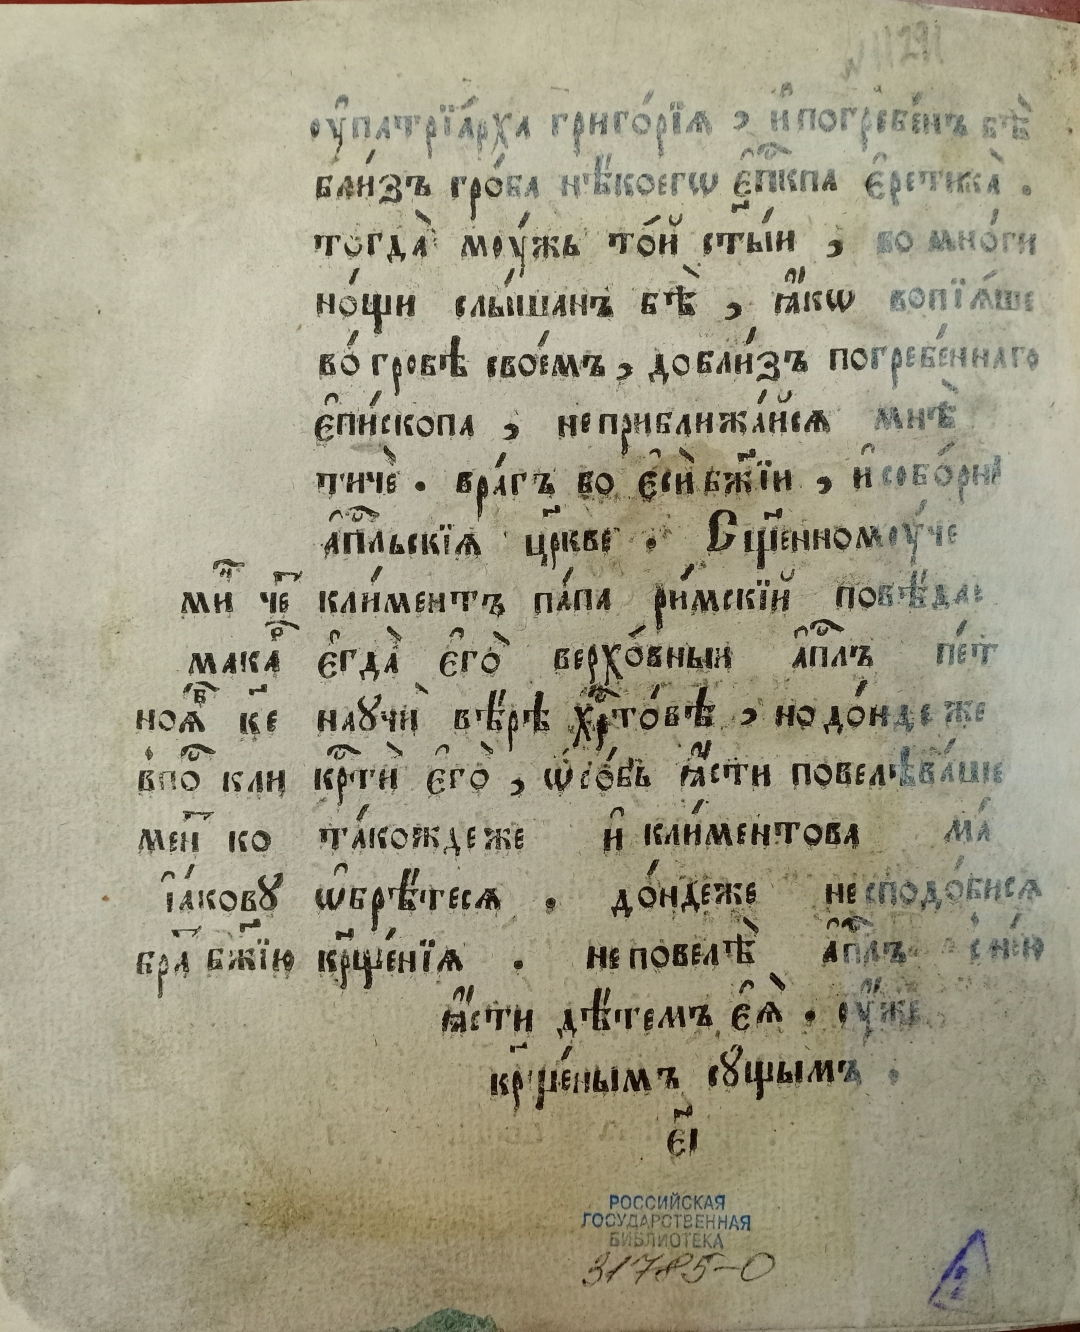 оу҆патрїа́рха григо́рїѧ , и҆погребе́нъ бѣ̀
бли́зъ гро́ба нѣ́коегѡ є҆пⷭ҇кпа є҆ретика̀ .
тогда̀ моу́жь то́й ст҃ы́и , во мно́ги
но́щи слы́шанъ бѣ̀ , ꙗ҆́кѡ вопїѧ́ше
во́ гробѣ свое́мъ , добли́зъ погребе́ннаго
є҆пи́скопа , неприближа́йсѧ мнѣ̀
тичѐ . вра́гъ бо є҆сѝ бж҃їи , и҆собо́рны
а҆пⷭ҇льскїѧ цр҃кве . Сщ҃е́нномоу́че
ми҃ че҃ кли́ментъ па́па ри́мскїй повѣ́дае
мака є҆гда̀ є҆го̀ верхо́вныи а҆пⷭ҇лъ пе́т
ноѧ ке҃ наꙋчѝ вѣ́рѣ хрⷭ҇то́вѣ , но до́ндеже
впо кли крⷭ҇тѝ є҆го̀ , ѡ҆со́бь ꙗ҆́сти повелѣва́ше
мен ко та́кождеже и҆ кли́ментова ма́
і҆а́ковꙋ ѡ҆брѣ́тесѧ . до́ндеже не сподо́бисѧ
бра бж҃їю крⷭ҇ще́нїѧ . не повелѣ̀ а҆пⷭ҇лъ с не́ю
ꙗ҆́сти дѣ́темъ є҆ѧ̀ . оу҆́же
кр҃ще́нымъ сꙋщымъ .
є҃і
РОССИЙСКАЯ
ГОСУДАРСТВЕННАЯ
БИБЛИОТЕКА
31785-О